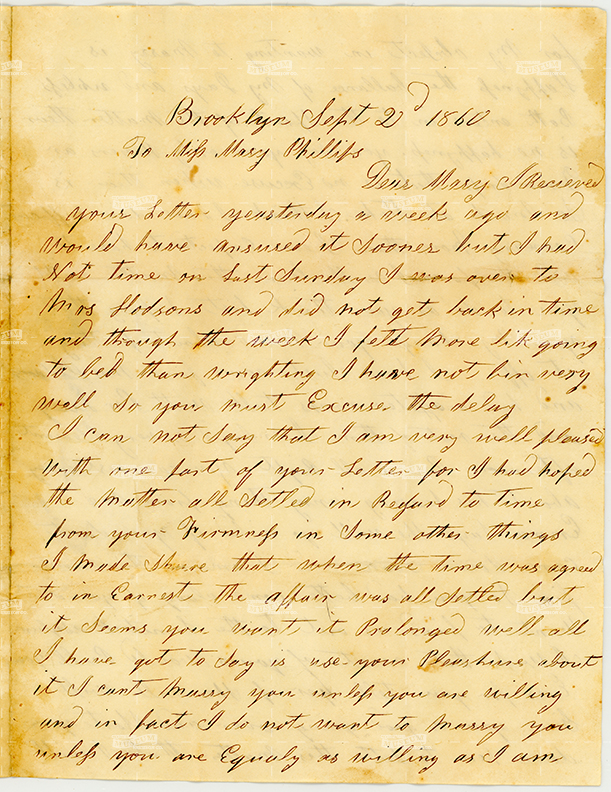 Brooklyn Sept 2d 1860
To Miss Mary Phillips
Dear Mary I Recieved
your Letter yeasterday a week ago and
would have ansured it sooner but I had
Not time on Last Sunday I was over to
Mrs Hodsons and did not get back in time
and through the week I felt More lik going
to bed than wrighting I have not bin very
well so you must Excuse the delay
I can not say that I am very well pleased
with one part of your Letter for I had hoped
the Matter all Setled in Regard to time
from your Firmness in Some other things
I Made shure that when the time was agreed
to in Earnest the affair was all Setled but
it Seems you want it Prolonged well all
I have got to Say is use your Pleashure about
it I cant Marry you unless you are willing
and in fact I do not want to Marry you
unless you are Equaly as willing as I am